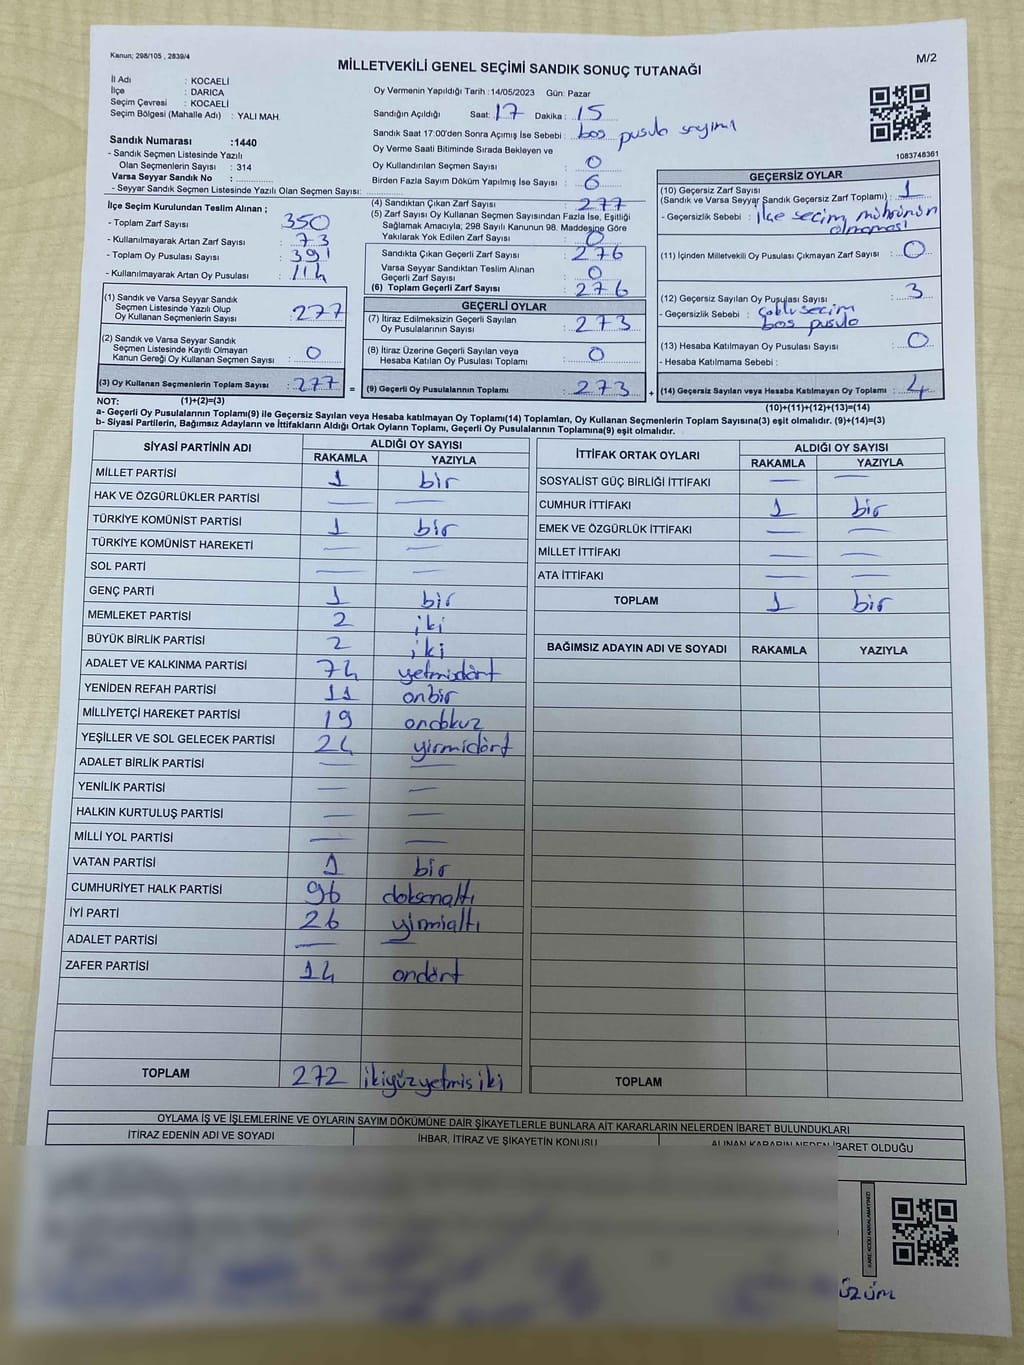 Kanun; 298/105 , 2839/4
M/2
MİLLETVEKİLİ GENEL SEÇİMİ SANDIK SONUÇ TUTANAĞI
İl Adı : KOCAELİ
İlçe : DARICA
Seçim Çevresi : KOCAELİ
Seçim Bölgesi (Mahalle Adı) : YALI MAH.
Sandık Numarası :1440
- Sandık Seçmen Listesinde Yazılı
Olan Seçmenlerin Sayısı : 314
Varsa Seyyar Sandık No :
- Seyyar Sandık Seçmen Listesinde Yazılı Olan Seçmen Sayısı:
Oy Vermenin Yapıldığı Tarih :14/05/2023 Gün: Pazar
Sandığın Açıldığı Saat: 17 Dakika : 15
Sandık Saat 17:00'den Sonra Açımış İse Sebebi : boş pusula sayımı
Oy Verme Saati Bitiminde Sırada Bekleyen ve
Oy Kullandırılan Seçmen Sayısı : 0
Birden Fazla Sayım Döküm Yapılmış İse Sayısı : 0
1083748361
İlçe Seçim Kurulundan Teslim Alınan ;
- Toplam Zarf Sayısı : 350
- Kullanılmayarak Artan Zarf Sayısı : 73
- Toplam Oy Pusulası Sayısı : 391
- Kullanılmayarak Artan Oy Pusulası : 114
(1) Sandık ve Varsa Seyyar Sandık
Seçmen Listesinde Yazılı Olup
Oy Kullanan Seçmenlerin Sayısı : 277
(2) Sandık ve Varsa Seyyar Sandık
Seçmen Listesinde Kayıtlı Olmayan
Kanun Gereği Oy Kullanan Seçmen Sayısı : 0
(3) Oy Kullanan Seçmenlerin Toplam Sayısı : 277
(4) Sandıktan Çıkan Zarf Sayısı : 277
(5) Zarf Sayısı Oy Kullanan Seçmen Sayısından Fazla İse, Eşitliği
Sağlamak Amacıyla; 298 Sayılı Kanunun 98. Maddesine Göre
Yakılarak Yok Edilen Zarf Sayısı : 0
Sandıkta Çıkan Geçerli Zarf Sayısı : 276
Varsa Seyyar Sandıktan Teslim Alınan
Geçerli Zarf Sayısı : 0
(6) Toplam Geçerli Zarf Sayısı : 276
GEÇERLİ OYLAR
(7) İtiraz Edilmeksizin Geçerli Sayılan
Oy Pusulalarının Sayısı : 273
(8) İtiraz Üzerine Geçerli Sayılan veya
Hesaba Katılan Oy Pusulası Toplamı : 0
(9) Geçerli Oy Pusulalarının Toplamı : 273
GEÇERSİZ OYLAR
(10) Geçersiz Zarf Sayısı
(Sandık ve Varsa Seyyar Sandık Geçersiz Zarf Toplamı) : 1
- Geçersizlik Sebebi : ilçe seçim mührünün
olmaması
(11) İçinden Milletvekili Oy Pusulası Çıkmayan Zarf Sayısı : 0
(12) Geçersiz Sayılan Oy Pusulası Sayısı : 3
- Geçersizlik Sebebi : Çoklu seçim
boş pusula
(13) Hesaba Katılmayan Oy Pusulası Sayısı : 0
- Hesaba Katılmama Sebebi :
(14) Geçersiz Sayılan veya Hesaba Katılmayan Oy Toplamı : 4
NOT: (1)+(2)=(3) = + (10)+(11)+(12)+(13)=(14)
a- Geçerli Oy Pusulalarının Toplamı(9) ile Geçersiz Sayılan veya Hesaba katılmayan Oy Toplamı(14) Toplamları, Oy Kullanan Seçmenlerin Toplam Sayısına(3) eşit olmalıdır. (9)+(14)=(3)
b- Siyasi Partilerin, Bağımsız Adayların ve İttifakların Aldığı Ortak Oyların Toplamı, Geçerli Oy Pusulalarının Toplamına(9) eşit olmalıdır.
SİYASİ PARTİNİN ADI ALDIĞI OY SAYISI
RAKAMLA YAZIYLA
MİLLET PARTİSİ 1 bir
HAK VE ÖZGÜRLÜKLER PARTİSİ — —
TÜRKİYE KOMÜNİST PARTİSİ 1 bir
TÜRKİYE KOMÜNİST HAREKETİ — —
SOL PARTİ — —
GENÇ PARTİ 1 bir
MEMLEKET PARTİSİ 2 iki
BÜYÜK BİRLİK PARTİSİ 2 iki
ADALET VE KALKINMA PARTİSİ 74 yetmişdört
YENİDEN REFAH PARTİSİ 11 onbir
MİLLİYETÇİ HAREKET PARTİSİ 19 ondokuz
YEŞİLLER VE SOL GELECEK PARTİSİ 24 yirmidört
ADALET BİRLİK PARTİSİ — —
YENİLİK PARTİSİ — —
HALKIN KURTULUŞ PARTİSİ — —
MİLLİ YOL PARTİSİ — —
VATAN PARTİSİ 1 bir
CUMHURİYET HALK PARTİSİ 96 doksanaltı
İYİ PARTİ 26 yirmialtı
ADALET PARTİSİ — —
ZAFER PARTİSİ 14 ondört
TOPLAM 272 ikiyüzyetmiş iki
İTTİFAK ORTAK OYLARI ALDIĞI OY SAYISI
RAKAMLA YAZIYLA
SOSYALİST GÜÇ BİRLİĞİ İTTİFAKI — —
CUMHUR İTTİFAKI 1 bir
EMEK VE ÖZGÜRLÜK İTTİFAKI — —
MİLLET İTTİFAKI — —
ATA İTTİFAKI — —
TOPLAM 1 bir
BAĞIMSIZ ADAYIN ADI VE SOYADI RAKAMLA YAZIYLA
TOPLAM
OYLAMA İŞ VE İŞLEMLERİNE VE OYLARIN SAYIM DÖKÜMÜNE DAİR ŞİKAYETLERLE BUNLARA AİT KARARLARIN NELERDEN İBARET BULUNDUKLARI
İTİRAZ EDENİN ADI VE SOYADI İHBAR, İTİRAZ VE ŞİKAYETİN KONUSU ALINAN KARARIN NEDEN İBARET OLDUĞU
KARE KODU KARALAMAYINIZ!
ÜZÜM